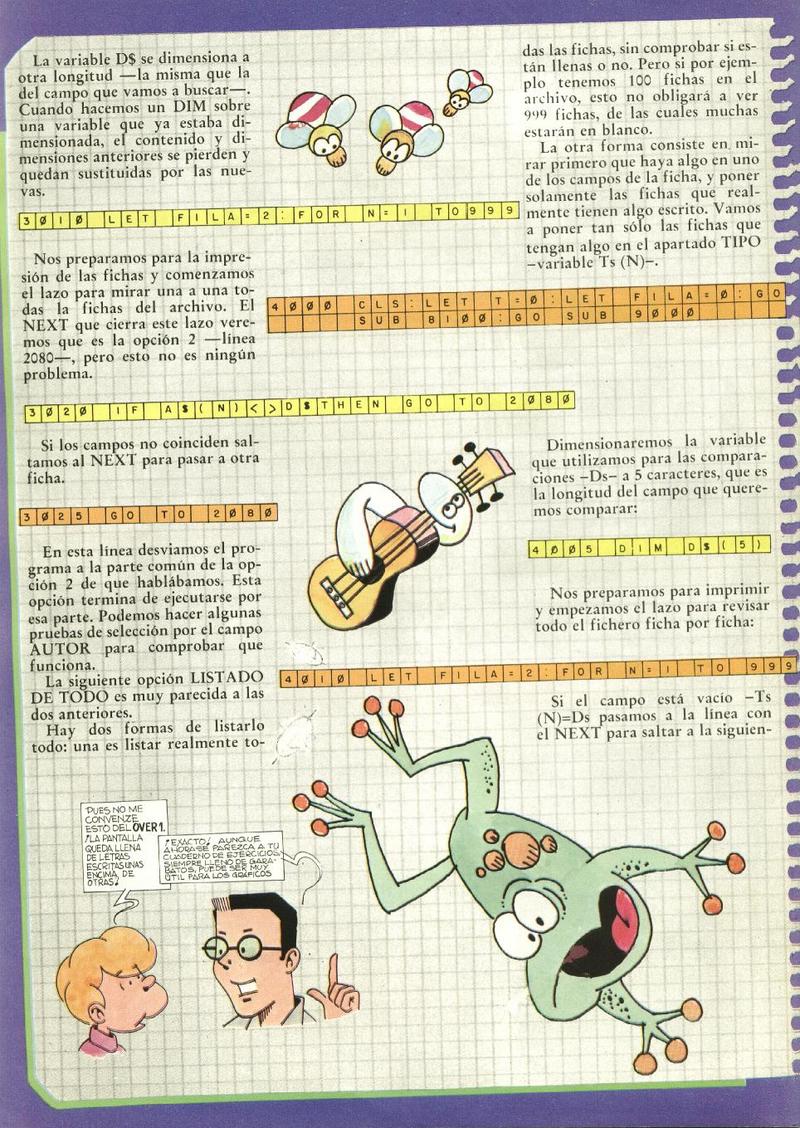 La variable D$ se dimensiona a
otra longitud —la misma que la
del campo que vamos a buscar—.
Cuando hacemos un DIM sobre
una variable que ya estaba di-
mensionada, el contenido y di-
mensiones anteriores se pierden y
quedan sustituidas por las nue-
vas.
3010 LET FILA=2:FOR N=1 TO999
Nos preparamos para la impre-
sión de las fichas y comenzamos
el lazo para mirar una a una to-
das la fichas del archivo. El
NEXT que cierra este lazo vere-
mos que es la opción 2 —línea
2080—, pero esto no es ningún
problema.
3020 IF A$(N)<>D$THEN GO TO 2080
Si los campos no coinciden sal-
tamos al NEXT para pasar a otra
ficha.
3025 GO TO 2080
En esta línea desviamos el pro-
grama a la parte común de la op-
ción 2 de que hablábamos. Esta
opción termina de ejecutarse por
esa parte. Podemos hacer algunas
pruebas de selección por el campo
AUTOR para comprobar que
funciona.
La siguiente opción LISTADO
DE TODO es muy parecida a las
dos anteriores.
Hay dos formas de listarlo
todo: una es listar realmente to-
das las fichas, sin comprobar si es-
tán llenas o no. Pero si por ejem-
plo tenemos 100 fichas en el
archivo, esto no obligará a ver
999 fichas, de las cuales muchas
estarán en blanco.
La otra forma consiste en mi-
rar primero que haya algo en uno
de los campos de la ficha, y poner
solamente las fichas que real-
mente tienen algo escrito. Vamos
a poner tan sólo las fichas que
tengan algo en el apartado TIPO
–variable Ts (N)–.
4000 CLS:LET T=0:LET FILA=0:GO
SUB 8100:GO SUB 9000
Dimensionaremos la variable
que utilizamos para las compara-
ciones –Ds– a 5 caracteres, que es
la longitud del campo que quere-
mos comparar:
4005 DIM D$(5)
Nos preparamos para imprimir
y empezamos el lazo para revisar
todo el fichero ficha por ficha:
4010 LET FILA=2:FOR N=1 TO 999
Si el campo está vacío –Ts
(N)=Ds pasamos a la línea con
el NEXT para saltar a la siguien-
PUES NO ME
CONVENZE
ESTO DEL OVER 1.
¡LA PANTALLA
QUEDA LLENA
DE LETRAS
ESCRITAS UNAS
ENCIMA DE
OTRAS!
¡EXACTO! AUNQUE
AHORA SE PAREZCA A TU
CUADERNO DE EJERCICIOS,
SIEMPRE LLENO DE GARA-
BATOS, PUEDE SER MUY
ÚTIL PARA LOS GRÁFICOS